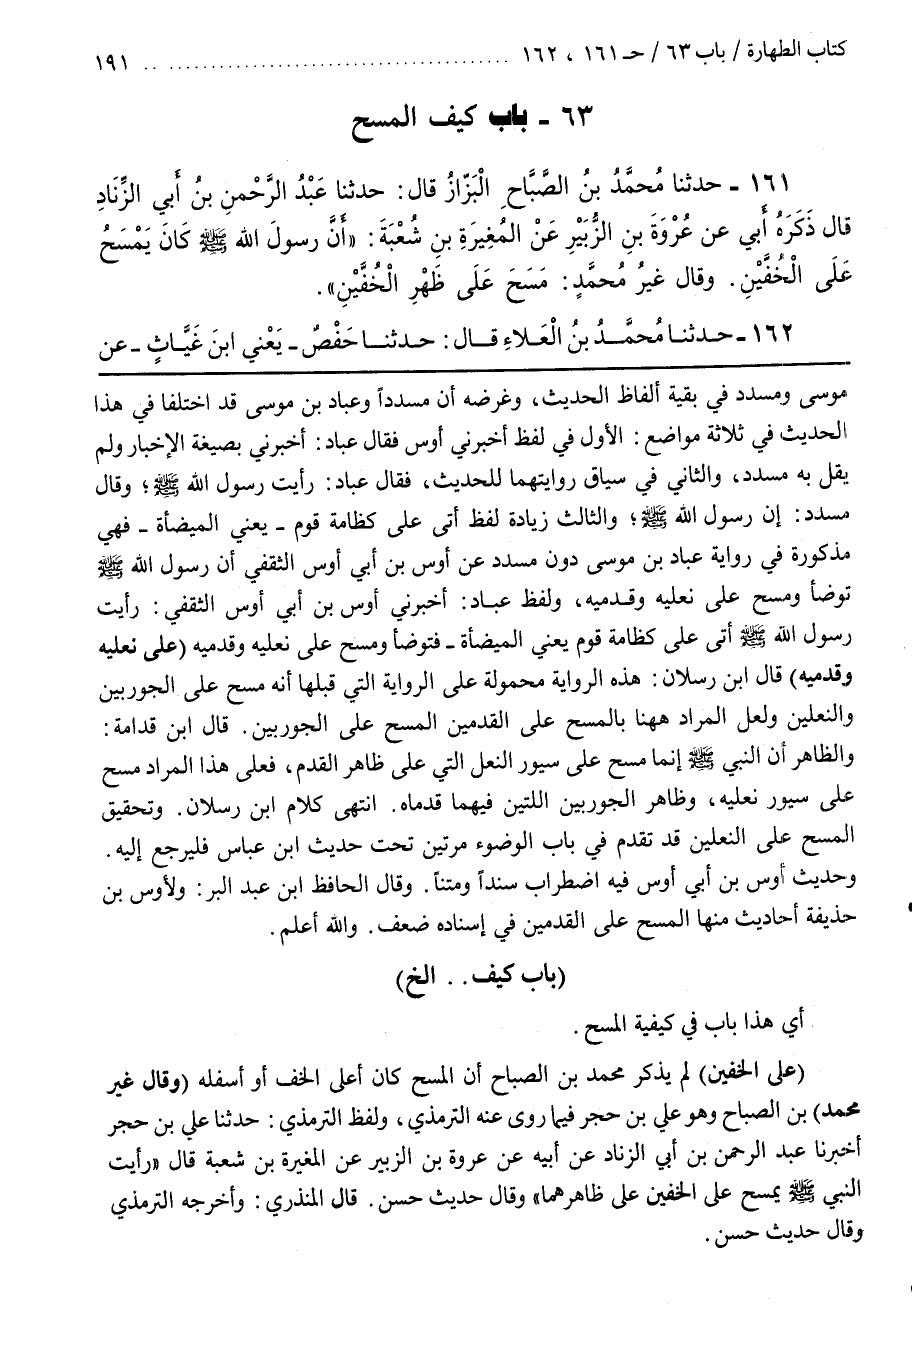 كتاب الطهارة / باب ٦٣ / حـ ١٦١ ، ١٦٢ ........................................ ١٩١
٦٣ ـ باب كيف المسح
١٦١ ـ حدثنا مُحمَّدُ بنُ الصَّبَّاحِ الْبَزّازُ قال: حدثنا عَبْدُ الرَّحْمنِ بنُ أَبي الزِّنَادِ
قال ذَكَرَهُ أَبي عن عُرْوَةَ بنِ الزُّبَيْرِ عَنْ المُغِيرَةِ بنِ شُعْبَةَ: «أَنَّ رسولَ الله ﷺ كَانَ يَمْسَحُ
عَلَى الْخُفَّيْنِ. وقال غيرُ مُحمَّدٍ: مَسَحَ عَلَى ظَهْرِ الْخُفَّيْنِ».
١٦٢ ـ حدثنا مُحمَّدُ بنُ الْعَلاءِ قال: حدثنا حَفْصٌ ـ يَعْني ابنَ غَيَّاثٍ ـ عن
موسى ومسدد في بقية ألفاظ الحديث، وغرضه أن مسدداً وعباد بن موسى قد اختلفا في هذا
الحديث في ثلاثة مواضع: الأول في لفظ أخبرني أوس فقال عباد: أخبرني بصيغة الإخبار ولم
يقل به مسدد، والثاني في سياق روايتهما للحديث، فقال عباد: رأيت رسول الله ﷺ؛ وقال
مسدد: إن رسول الله ﷺ؛ والثالث زيادة لفظ أتى على كظامة قوم ـ يعني الميضأة ـ فهي
مذكورة في رواية عباد بن موسى دون مسدد عن أوس بن أبي أوس الثقفي أن رسول الله ﷺ
توضأ ومسح على نعليه وقدميه، ولفظ عباد: أخبرني أوس بن أبي أوس الثقفي: رأيت
رسول الله ﷺ أتى على كظامة قوم يعني الميضأة ـ فتوضأ ومسح على نعليه وقدميه (على نعليه
وقدميه) قال ابن رسلان: هذه الرواية محمولة على الرواية التي قبلها أنه مسح على الجوربين
والنعلين ولعل المراد ههنا بالمسح على القدمين المسح على الجوربين. قال ابن قدامة:
والظاهر أن النبي ﷺ إنما مسح على سيور النعل التي على ظاهر القدم، فعلى هذا المراد مسح
على سيور نعليه، وظاهر الجوربين اللتين فيهما قدماه. انتهى كلام ابن رسلان. وتحقيق
المسح على النعلين قد تقدم في باب الوضوء مرتين تحت حديث ابن عباس فليرجع إليه.
وحديث أوس بن أبي أوس فيه اضطراب سنداً ومتناً. وقال الحافظ ابن عبد البر: ولأوس بن
حذيفة أحاديث منها المسح على القدمين في إسناده ضعف. والله أعلم.
(باب كيف.. الخ)
أي هذا باب في كيفية المسح.
(على الخفين) لم يذكر محمد بن الصباح أن المسح كان أعلى الخف أو أسفله (وقال غير
محمد) بن الصباح وهو علي بن حجر فيما روى عنه الترمذي، ولفظ الترمذي: حدثنا علي بن حجر
أخبرنا عبد الرحمن بن أبي الزناد عن أبيه عن عروة بن الزبير عن المغيرة بن شعبة قال «رأيت
النبي ﷺ يمسح على الخفين على ظاهرهما» وقال حديث حسن. قال المنذري: وأخرجه الترمذي
وقال حديث حسن.